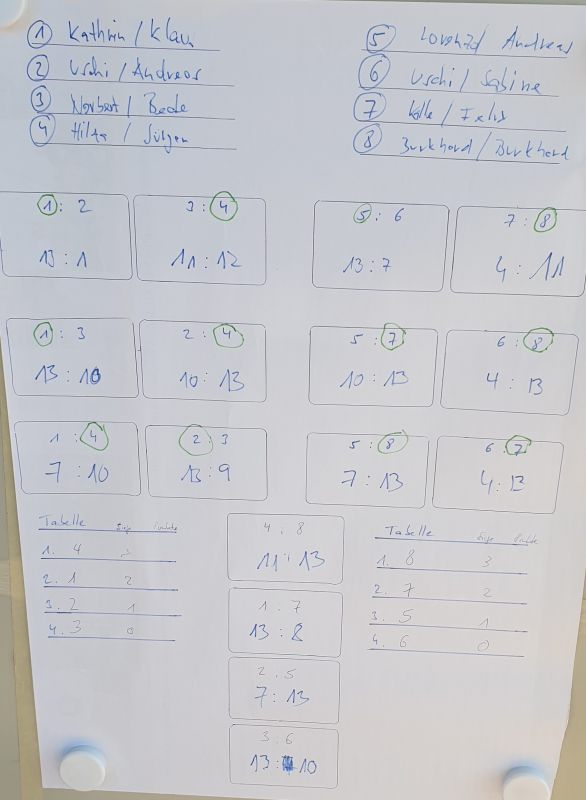 1 Kathrin / Klaus
2 Uschi / Andreas
3 Norbert / Beate
4 Hilta / Jürgen
5 Andreas
6 Uschi / Sabine
7 Kalle / Felis
8 Burkhard / Burkhard
1 : 2
13 : 1
3 : 4
11 : 12
5 : 6
13 : 7
7 : 8
4 : 11
1 : 3
13 : 10
2 : 4
10 : 13
5 : 7
10 : 13
6 : 8
4 : 13
1 : 4
7 : 10
2 : 3
13 : 9
5 : 8
7 : 13
6 : 7
4 : 13
Tabelle Siege Punkte
1. 4 3
2. 1 2
3. 2 1
4. 3 0
4 : 8
11 : 13
1 : 7
13 : 8
2 . 5
7 : 13
3 . 6
13 : 10
Tabelle Siege Punkte
1. 8 3
2. 7 2
3. 5 1
4. 6 0